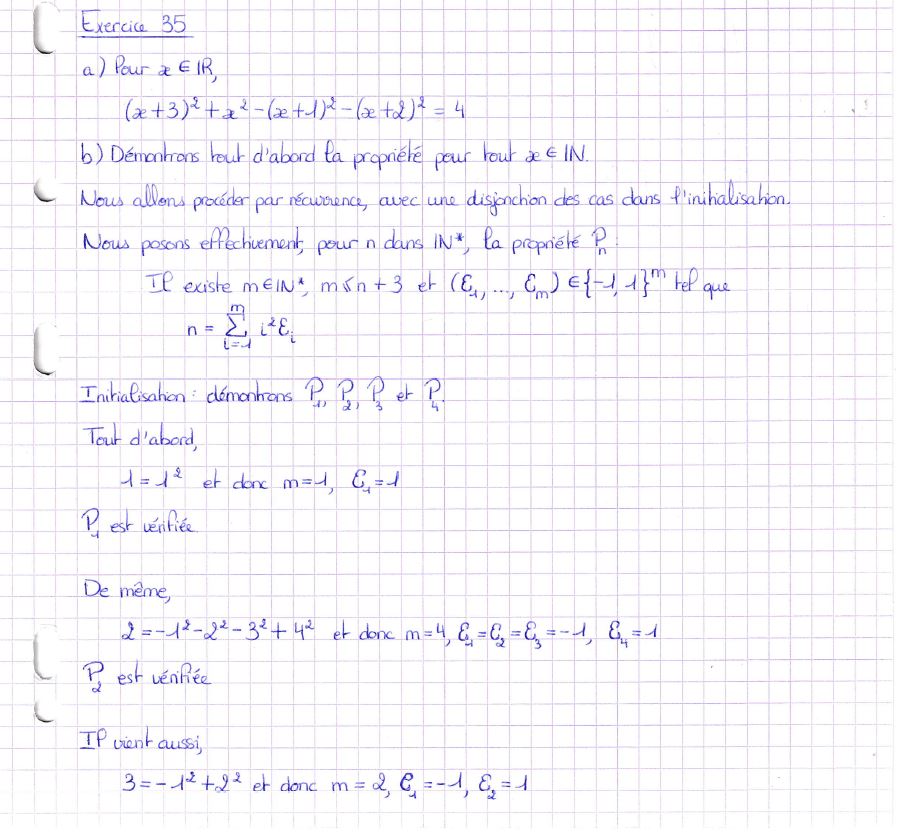 Exercice 35
a) Pour x ∈ IR,
(x+3)² + x² - (x+1)² - (x+2)² = 4
b) Démontrons tout d'abord la propriété pour tout x ∈ IN.
Nous allons procéder par récurrence, avec une disjonction des cas dans l'initialisation.
Nous posons effectivement, pour n dans IN*, la propriété Pₙ :
Il existe m ∈ IN*, m ≤ n + 3 et (ε₁, ..., εₘ) ∈ {-1, 1}ᵐ tel que
n = ∑_{i=1}^{m} i² εᵢ
Initialisation : démontrons P₁, P₂, P₃ et P₄.
Tout d'abord,
1 = 1² et donc m = 1, ε₁ = 1
P₁ est vérifiée
De même,
2 = -1² - 2² - 3² + 4² et donc m = 4, ε₁ = ε₂ = ε₃ = -1, ε₄ = 1
P₂ est vérifiée
Il vient aussi,
3 = -1² + 2² et donc m = 2, ε₁ = -1, ε₂ = 1